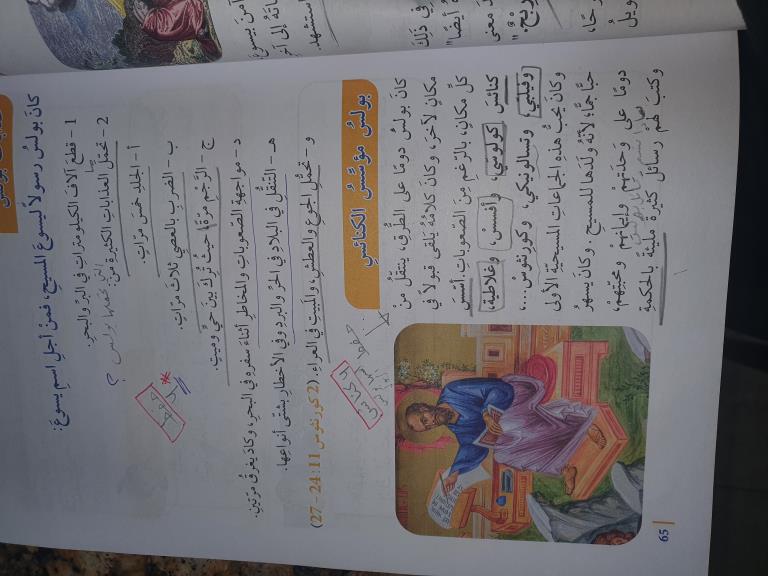 كانَ بولسُ رسولاً ليسوعَ المسيحِ، فمنْ أجلِ اسمِ يسوعَ:
1 - قطعَ آلافَ الكيلومتراتِ في البرِّ والبحرِ.
2 - تحمّلَ العذاباتِ الكثيرةَ مِنْ:
أ - الجلدِ خمسَ مرّاتٍ.
ب - الضربِ بالعصيِ ثلاثَ مرّاتٍ.
ج - الرَّجْمِ مرّةً حيثُ تُرِكَ بين حيٍّ وميتٍ.
د - مواجهةِ الصّعوباتِ والمخاطرِ أثناءَ سفرِهِ في البحرِ، وكادَ يغرقُ مرّتينِ.
هـ - التّنقّلِ في البلادِ في الحرِّ والبردِ وفي الأخطارِ بشتّى أنواعِها.
و - تحمُّلِ الجوعِ والعطشِ، والمبيتِ في العراءِ. (2 كورنثوس 11: 24 – 27)
حفظ
بولسُ مؤسّسُ الكنائسِ
حفظ
كانَ بولسُ دومًا على الطُّرقِ، يتنقّلُ مِنْ
مكانٍ لآخرَ، وكانَ كلامُهُ يلقى قبولاً في
كلِّ مكانٍ، بالرّغمِ مِنَ الصّعوباتِ أسّسَ
كنائسَ كولوسي، وأفسُسَ، وغلاطيةَ،
وفيلبّي، وتسالونيكي، وكورنثوسَ...،
وكانَ يحبُّ هذِهِ الجماعاتِ المسيحيّةَ الأولى
حبًّا جمًّا، لأنّهُ ولدَها للمسيحِ. وكانَ يسهرُ
دومًا على وحدتِهمْ وإيمانِهمْ ومحبّتِهمْ،
وكتبَ لهمْ رسائلَ كثيرةً مليئةً بالحكمةِ
65